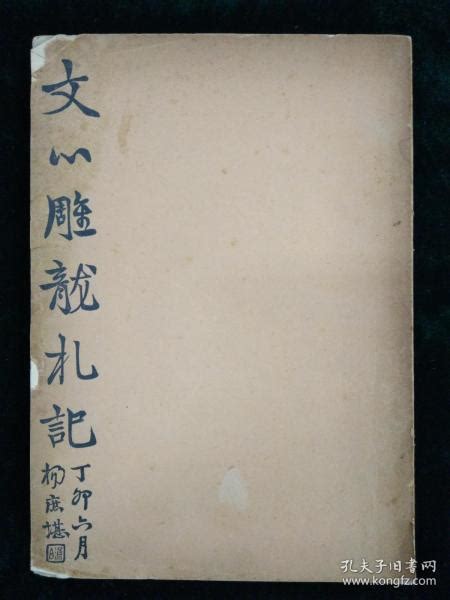 文心雕龍札記
丁卯六月
楊庶堪
孔夫子旧书网
www.kongfz.com